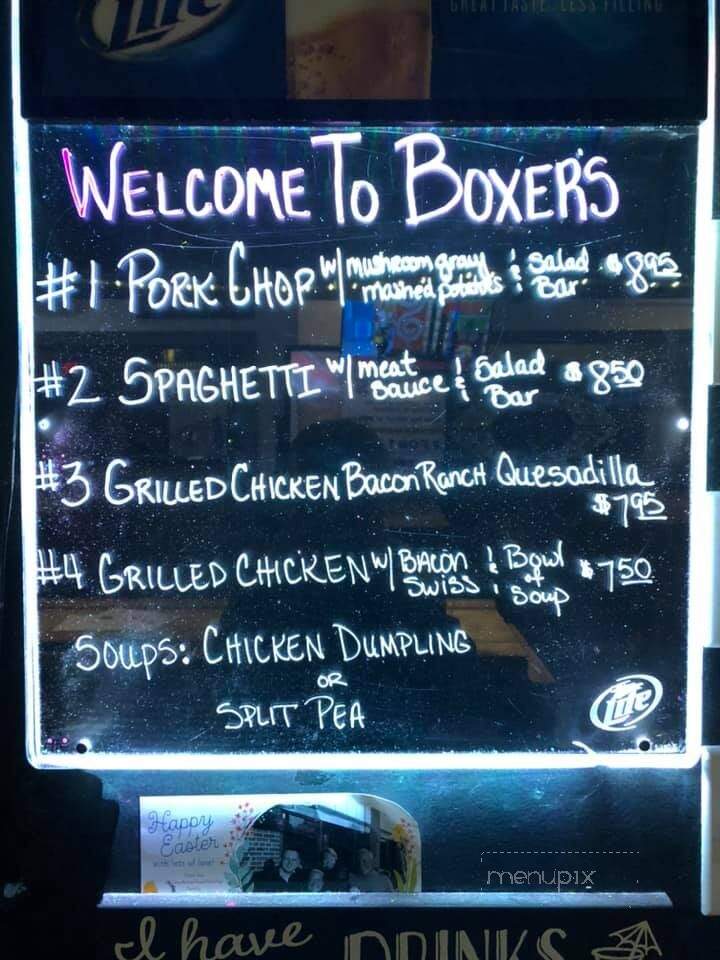 Lite
GREAT TASTE. LESS FILLING
WELCOME TO BOXER'S
#1 PORK CHOP w/ mushroom gravy & Salad $8.95
mashed potatoes Bar
#2 SPAGHETTI w/ meat & Salad $8.50
Sauce Bar
#3 GRILLED CHICKEN Bacon Ranch Quesadilla
$7.95
#4 GRILLED CHICKEN w/ BACON & Bowl $7.50
SWISS of
Soup
SOUPS: CHICKEN DUMPLING
OR
SPLIT PEA
Lite
Happy
Easter
with lots of love!
menupix
I have DRINKS